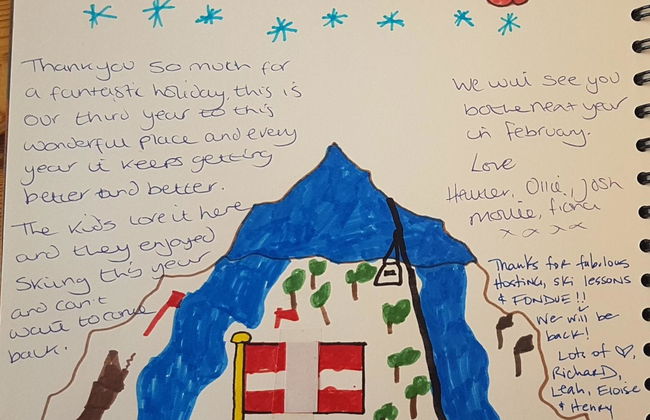 Thankyou so much for
a fantastic holiday, this is
our third year to this
wonderful place and every
year it keeps getting
better and better.
The kids love it here
and they enjoyed
skiing this year
and can't
wait to come
back.
We will see you
both next year
in February.
Love
Ollie, Josh
Mollie, Fiona
x x x x
Thanks for fabulous
Hosting, ski lessons
& FONDUE!!
We will be
back!
Lots of ♡,
Richard,
Leah, Eloise
& Henry